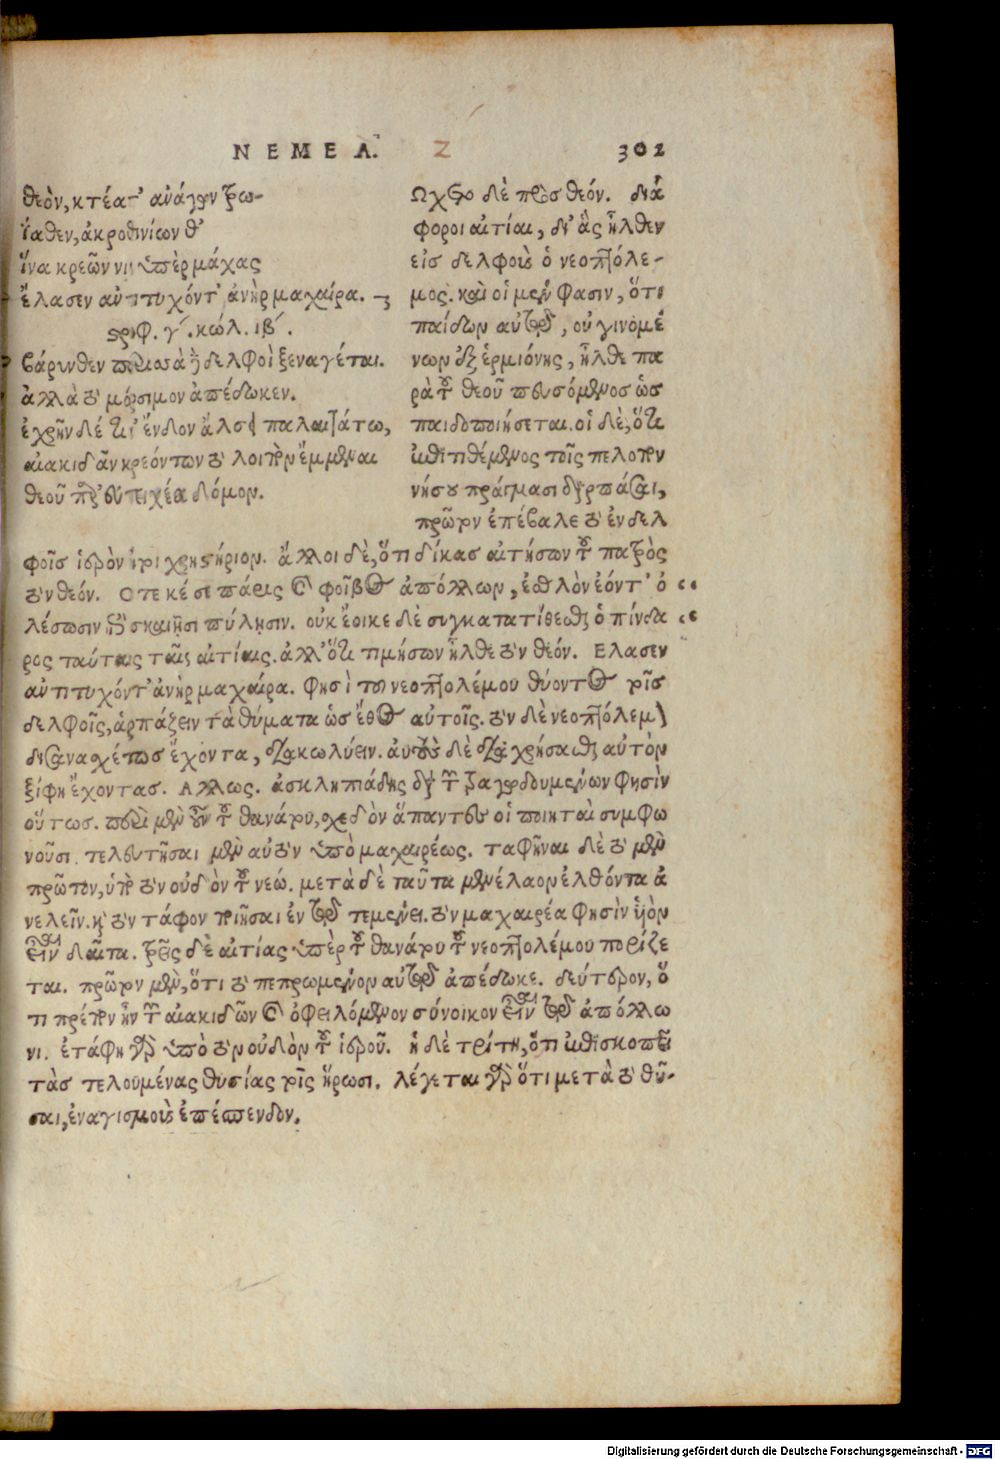 ΝΕΜΕΑ. Ζ 302
θεὸν, κτέατ' ἀνάγων τρω-
ΐαθεν, ἀκροθινίων θ'
ἵνα κρεῶν νιν ὑπὲρ μάχας
ἔλασεν ἀντιτυχόντ' ἀνὴρ μαχαίρα.
στροφ. γ'. κώλ. ιβ'.
βάρυνθεν περισσὰ δὲ δελφοὶ ξεναγέται.
ἀλλὰ τὸ μόρσιμον ἀπέδωκεν.
ἐχρῆν δέ τιν' ἔνδον ἄλσει παλαιτάτω,
αἰακιδᾶν κρεόντων τὸ λοιπὸν ἔμμεναι
θεοῦ παρ' εὐτειχέα δόμον.
Ὤχετο δὲ πρὸς θεόν. διά
φοροι αἰτίαι, δι' ἃς ἦλθεν
εἰς δελφοὺς ὁ νεοπτόλε-
μος. καὶ οἱ μὲν φασιν, ὅτι
παίδων αὐτῷ, οὐ γινομέ
νων ἐξ ἑρμιόνης, ἦλθε πα
ρὰ τοῦ θεοῦ πευσόμενος ὡς
παιδοποιήσεται. οἱ δὲ, ὅτι
ἐπιτιθέμενος τοῖς πελοπον
νήσου πράγμασι διαρπάσαι,
πρῶτον ἐπέβαλε τὸ ἐν δελ
φοῖς ἱερὸν καὶ χρηστήριον. ἄλλοι δὲ, ὅτι δίκας αἰτήσων τοῦ πατρὸς
τὸν θεόν. Ὅτε κέ σε πάρις καὶ φοῖβος ἀπόλλων, ἐσθλὸν ἐόντ' ὀ
λέσωσιν ἐν σκαιῇσι πύλῃσιν. οὐκ ἔοικε δὲ συγκατατίθεσθαι ὁ πίνδα
ρος ταύταις ταῖς αἰτίαις. ἀλλ' ὅτι τιμήσων ἦλθε τὸν θεόν. Ελασεν
ἀντιτυχόντ' ἀνὴρ μαχαίρα. φησὶ τοῦ νεοπτολέμου θύοντος τοῖς
δελφοῖς, ἁρπάζειν τὰ θύματα ὡς ἔθος αὐτοῖς. τὸν δὲ νεοπτόλεμον
δυσανασχέτως ἔχοντα, διακωλύειν. αὐτοὺς δὲ διαχρήσασθαι αὐτὸν
ξίφη ἔχοντας. Αλλως. ἀσκληπιάδης διὰ τῶν τραγῳδουμένων φησὶν
οὕτως. περὶ μὲν οὖν τοῦ θανάτου, σχεδὸν ἅπαντες οἱ ποιηταὶ συμφω
νοῦσι. τελευτῆσαι μὲν αὐτὸν ὑπὸ μαχαιρέως. ταφῆναι δὲ τὸ μὲν
πρῶτον, ὑπὸ τὸν οὐδὸν τοῦ νεώ. μετὰ δὲ ταῦτα μενέλαον ἐλθόντα ἀ
νελεῖν. καὶ τὸν τάφον ποιῆσαι ἐν τῷ τεμένει. τὸν μαχαιρέα φησὶν υἱὸν
εἶναι δαίτα. τρεῖς δὲ αἰτίας ὑπὲρ τοῦ θανάτου τοῦ νεοπτολέμου πορίζε
ται. πρῶτον μὲν, ὅτι τὸ πεπρωμένον αὐτῷ ἀπέδωκε. δεύτερον, ὅ
τι πρέπον ἦν τῶν αἰακιδῶν καὶ ὀφειλόμενον σύνοικον εἶναι τῷ ἀπόλλω
νι. ἐτάφη γὰρ ὑπὸ τὸν οὐδὸν τοῦ ἱεροῦ. ἡ δὲ τρίτη, ὅτι ἐπισκοπεῖ
τὰς τελουμένας θυσίας τοῖς ἥρωσι. λέγεται γὰρ ὅτι μετὰ τὸ θῦ-
σαι, ἐναγισμοὺς ἐπέσπενδον.
Digitalisierung gefördert durch die Deutsche Forschungsgemeinschaft - DFG